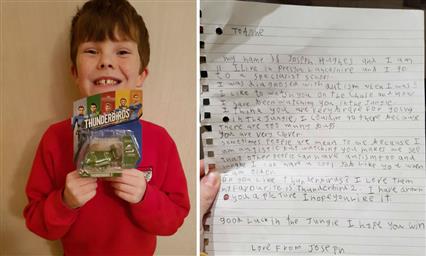 THUNDERBIRDS
TO Anne
my name is Joseph Hughes and I am
11 I live in Preston Lancashire and I go
to a specialist school
I was diagnosed with autism when I was
I like to watch you on the chase and now
I have been watching you in the Jungle.
I think you are very brave for going
in the Jungle, I couldn't go there because
there are too many
you are very clever
sometimes people are mean to me because I
am autistic but watching you makes me see
that other people can have autism too and
I am older
Do you like Thunderbirds? I love them
my favourite is Thunderbird 2. I have drawn
you a picture I hope you like it
good luck in the Jungle I hope you win
Love From Joseph